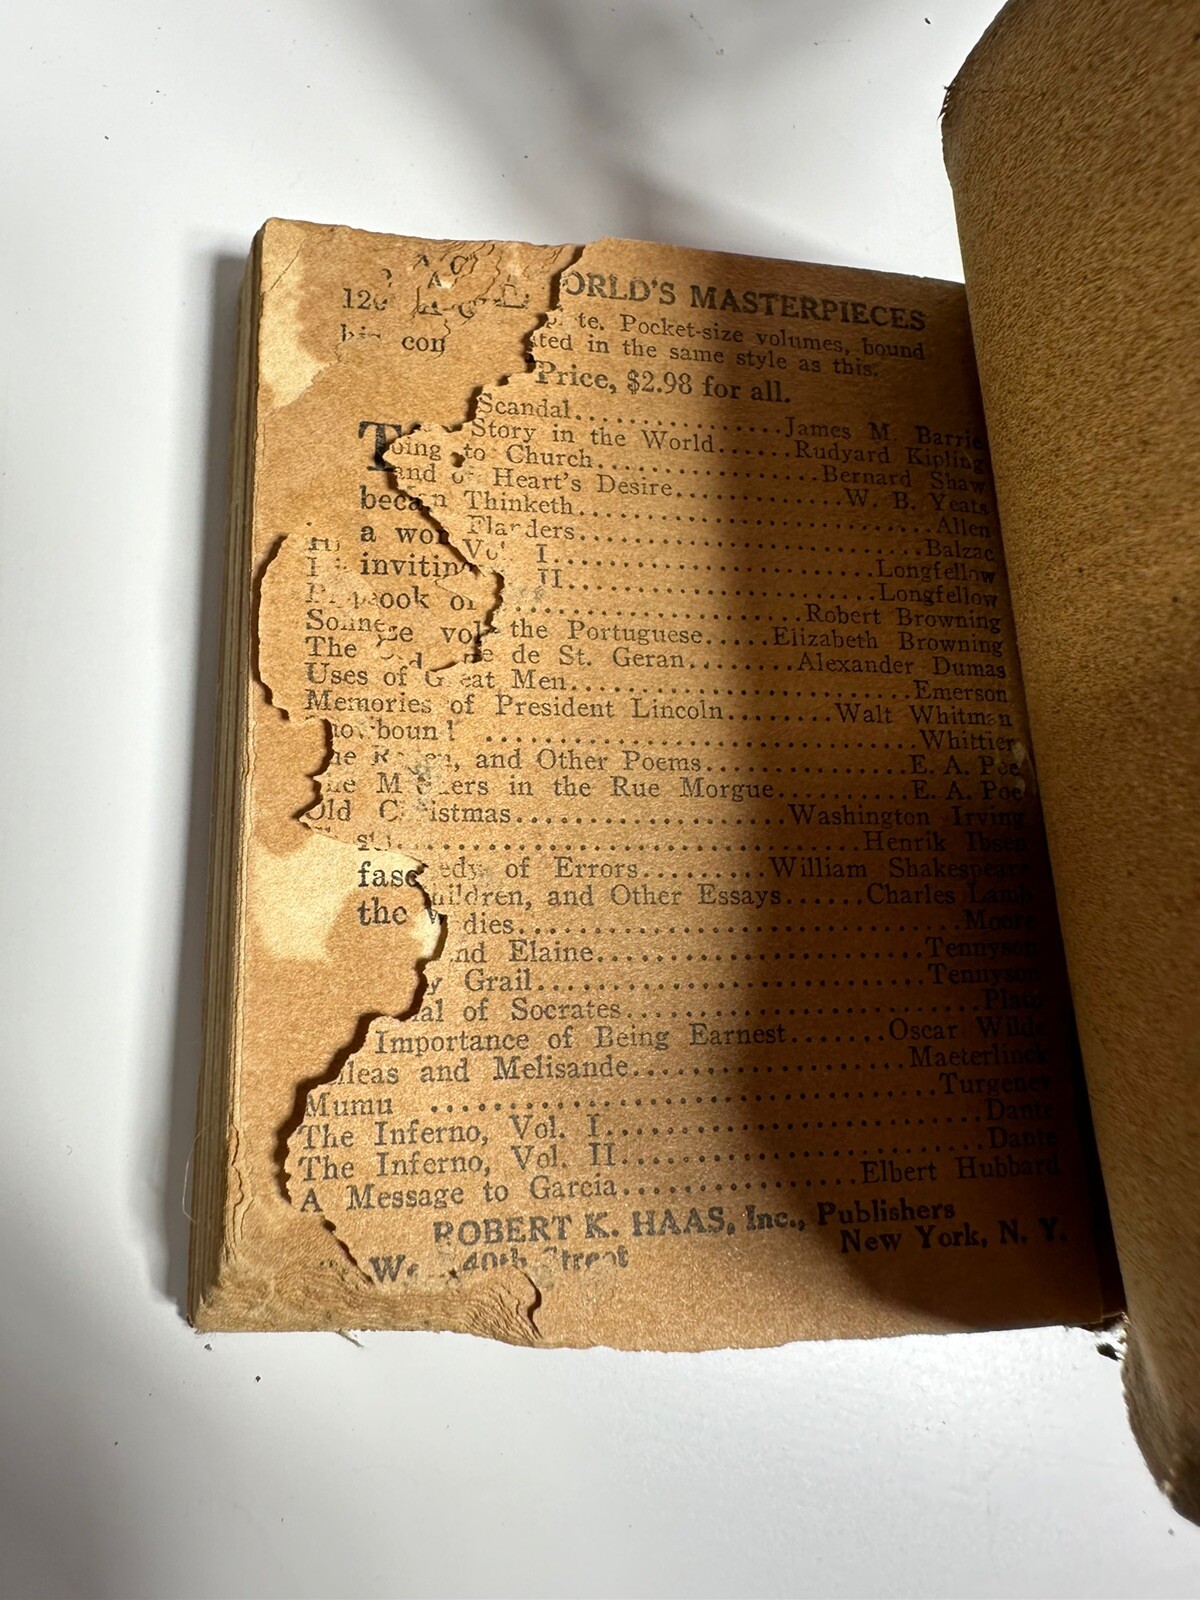 ORLD'S MASTERPIECES
te. Pocket-size volumes, bound
ted in the same style as this.
Price, $2.98 for all.
Scandal............James M. Barrie
Story in the World......Rudyard Kipling
oing to Church............Bernard Shaw
and Heart's Desire............W. B. Yeats
Thinketh............Allen
Flanders............Balzac
Vol. I............Longfellow
II............Longfellow
............Robert Browning
Sonne the Portuguese.....Elizabeth Browning
The de St. Geran........Alexander Dumas
Uses of Great Men............Emerson
Memories of President Lincoln........Walt Whitman
bound............Whittier
he and Other Poems............E. A. Poe
he ers in the Rue Morgue..........E. A. Poe
Old Christmas............Washington Irving
............Henrik Ibsen
edy of Errors.........William Shakespeare
hildren, and Other Essays......Charles Lamb
dies............Moore
nd Elaine............Tennyson
y Grail............Tennyson
al of Socrates............Plato
Importance of Being Earnest.......Oscar Wilde
lleas and Melisande............Maeterlinck
Mumu............Turgenev
The Inferno, Vol. I............Dante
The Inferno, Vol. II............Dante
A Message to Garcia............Elbert Hubbard
ROBERT K. HAAS, Inc., Publishers
40th Street New York, N. Y.
con
becan
a wor
invitin
book
vol
fasc
the